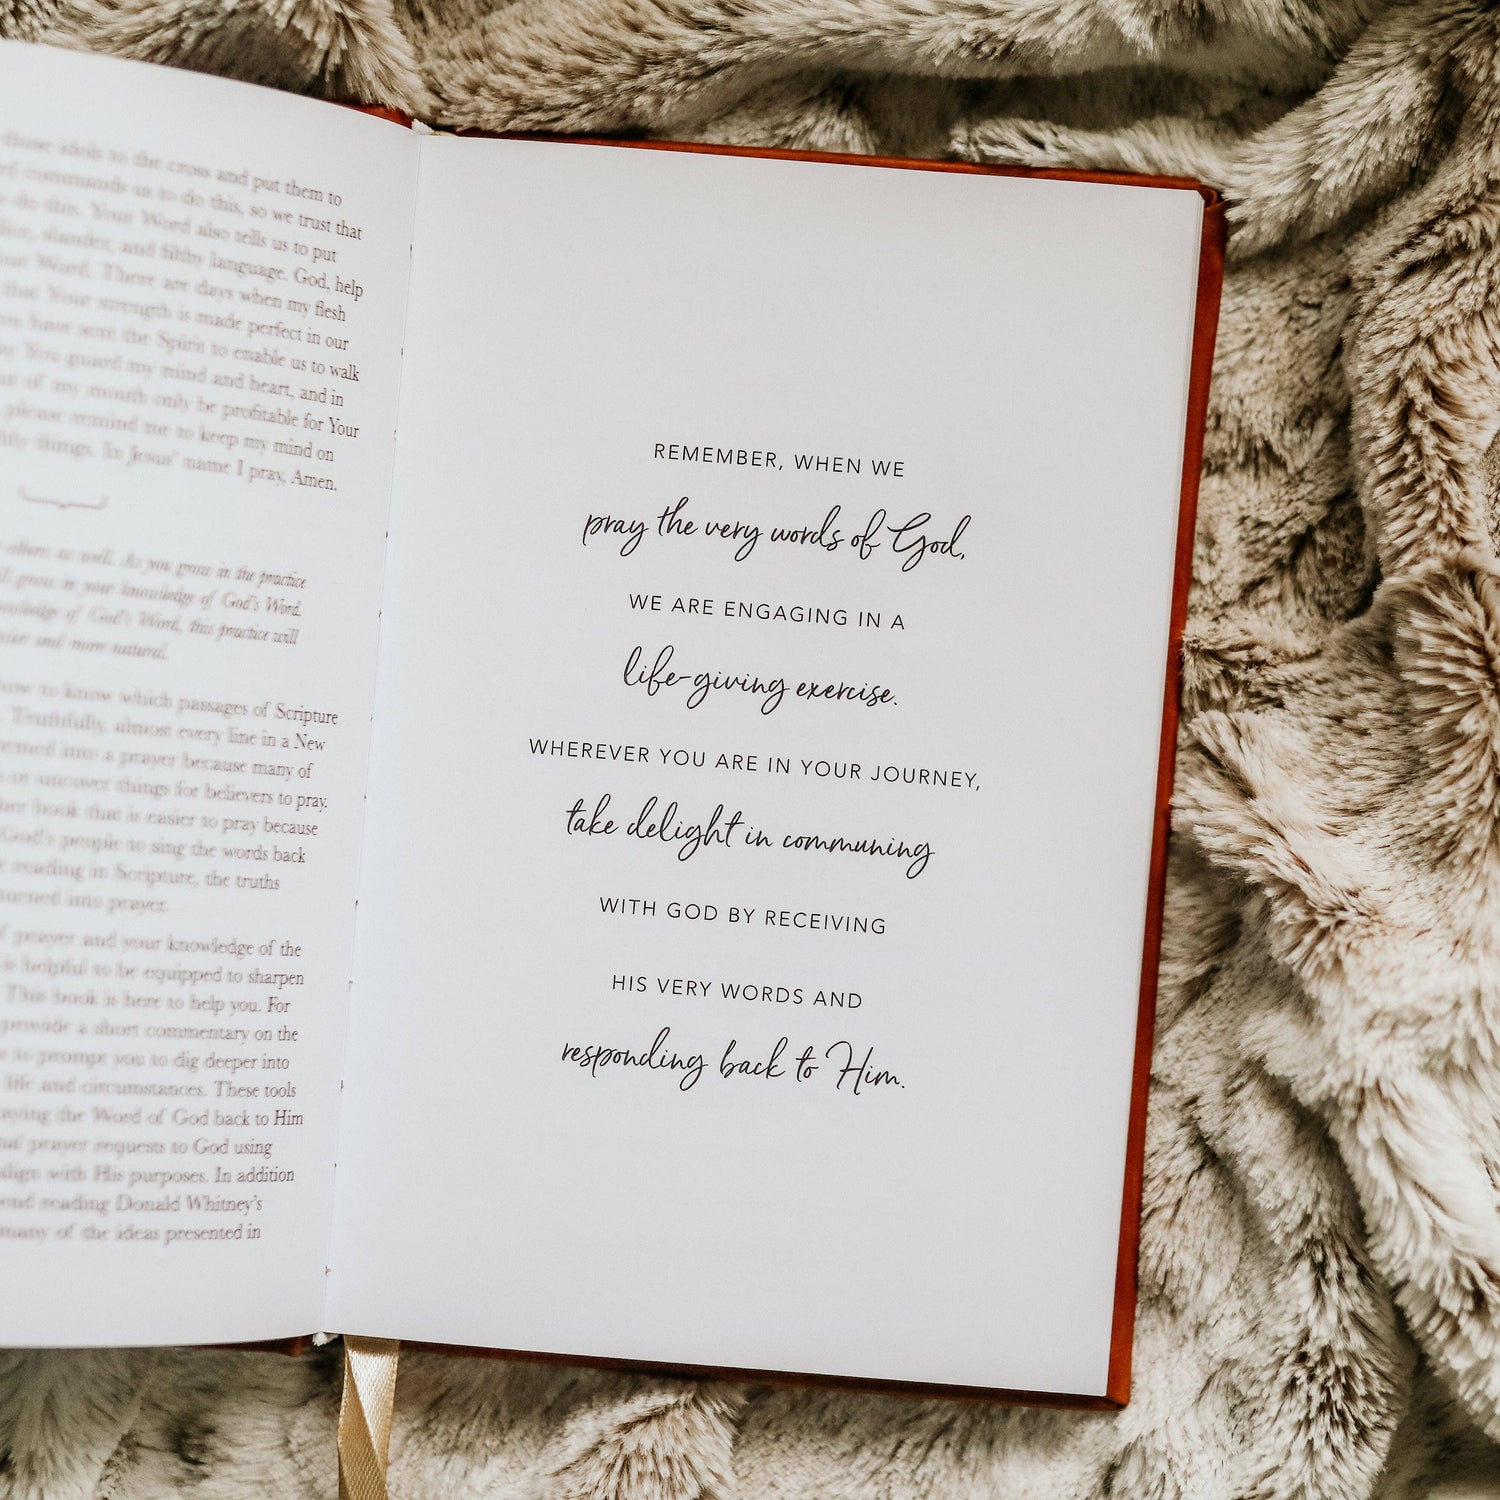 those idols to the cross and put them to
commands us to do this, so we trust that
do this. Your Word also tells us to put
slander, and filthy language. God, help
Word. There are days when my flesh
that Your strength is made perfect in our
have sent the Spirit to enable us to walk
You guard my mind and heart, and in
of my mouth only be profitable for Your
please remind me to keep my mind on
things. In Jesus' name I pray, Amen.
others as well. As you grow in the practice
grow in your knowledge of God's Word.
of God's Word, this practice will
and more natural.
how to know which passages of Scripture
Truthfully, almost every line in a New
into a prayer because many of
or uncover things for believers to pray.
book that is easier to pray because
God's people to sing the words back
reading in Scripture, the truths
turned into prayer.
prayer and your knowledge of the
is helpful to be equipped to sharpen
This book is here to help you. For
provide a short commentary on the
to prompt you to dig deeper into
life and circumstances. These tools
praying the Word of God back to Him
prayer requests to God using
align with His purposes. In addition
reading Donald Whitney's
many of the ideas presented in
REMEMBER, WHEN WE
pray the very words of God,
WE ARE ENGAGING IN A
life-giving exercise.
WHEREVER YOU ARE IN YOUR JOURNEY,
take delight in communing
WITH GOD BY RECEIVING
HIS VERY WORDS AND
responding back to Him.